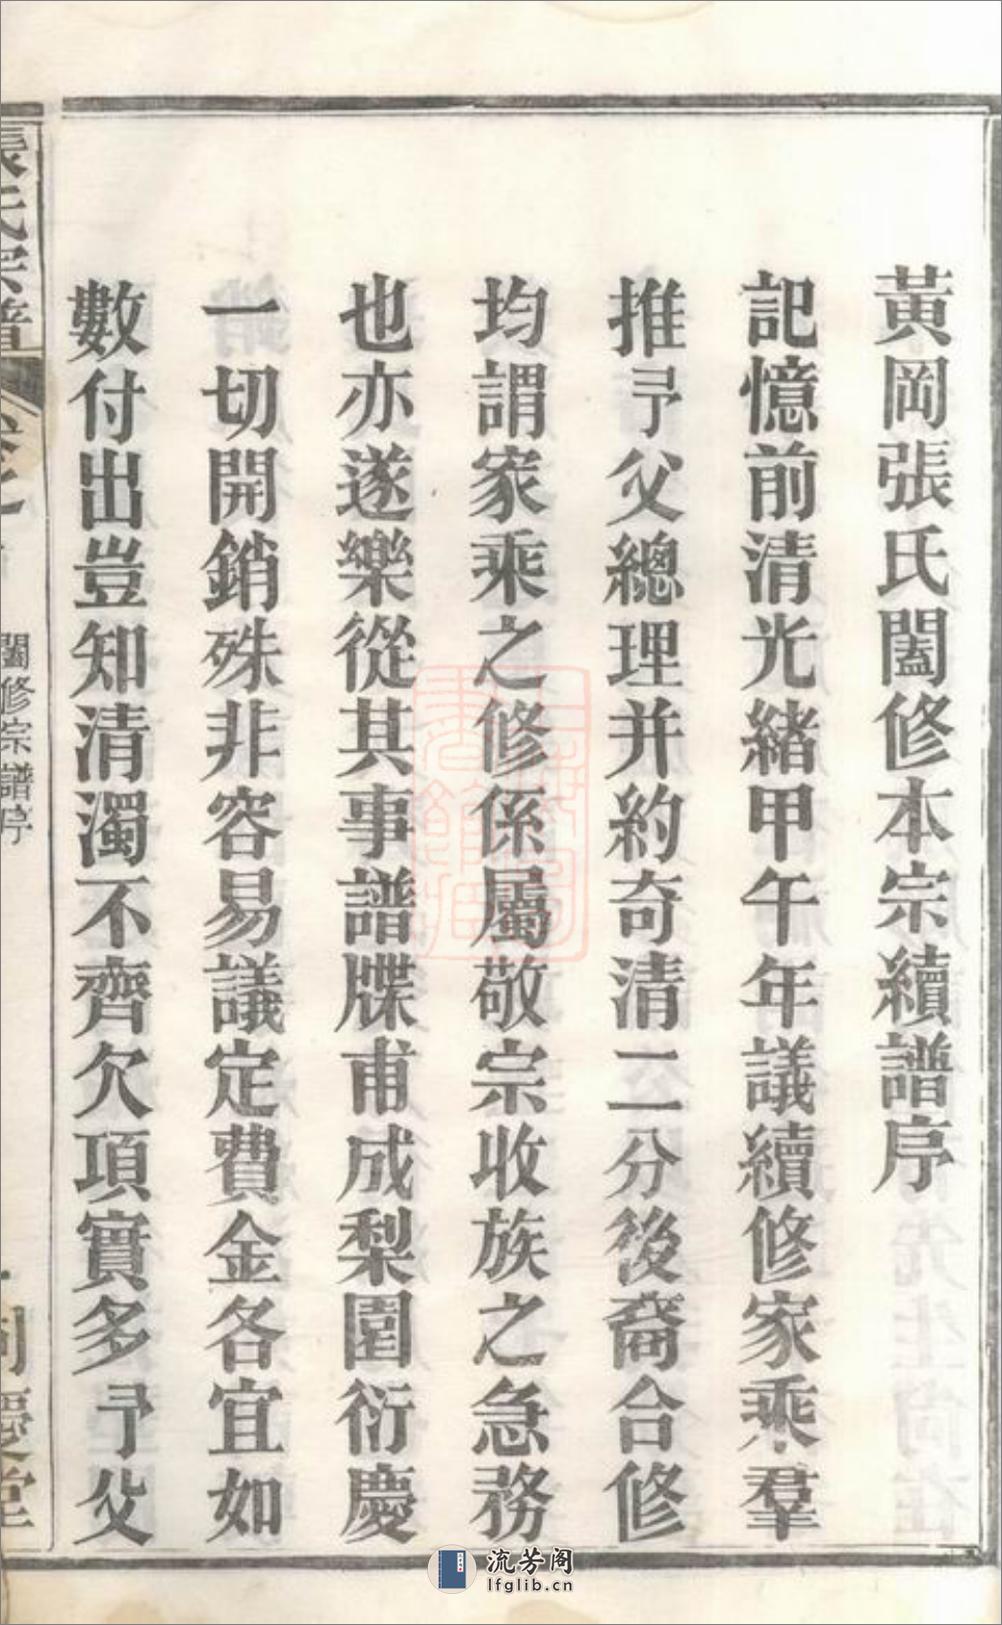 黃岡張氏闔修本宗續譜序
記憶前清光緒甲午年議續修家乘羣
推予父總理并約奇清二分後裔合修
均謂家乘之修係屬敬宗收族之急務
也亦遂樂從其事譜牒甫成梨園衍慶
一切開銷殊非容易議定費金各宜如
數付出豈知清濁不齊欠項實多予父
張氏宗譜
闔修宗譜序
同慶堂
流芳阁
lfglib.cn